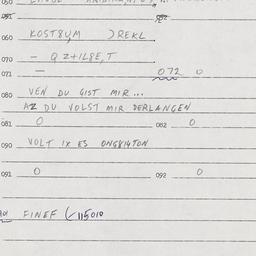 050
051 052
060 KOST8YM JREKL
070 - Q Z+IL8E,T
071 - 072 0
080 VEN DU GIST MIR...
AZ DU VOLST MIR DERLANGEN
081 0 082 0
090 VOLT IX ES ONG8I4TON
091 0 092 0
FINEF 115010